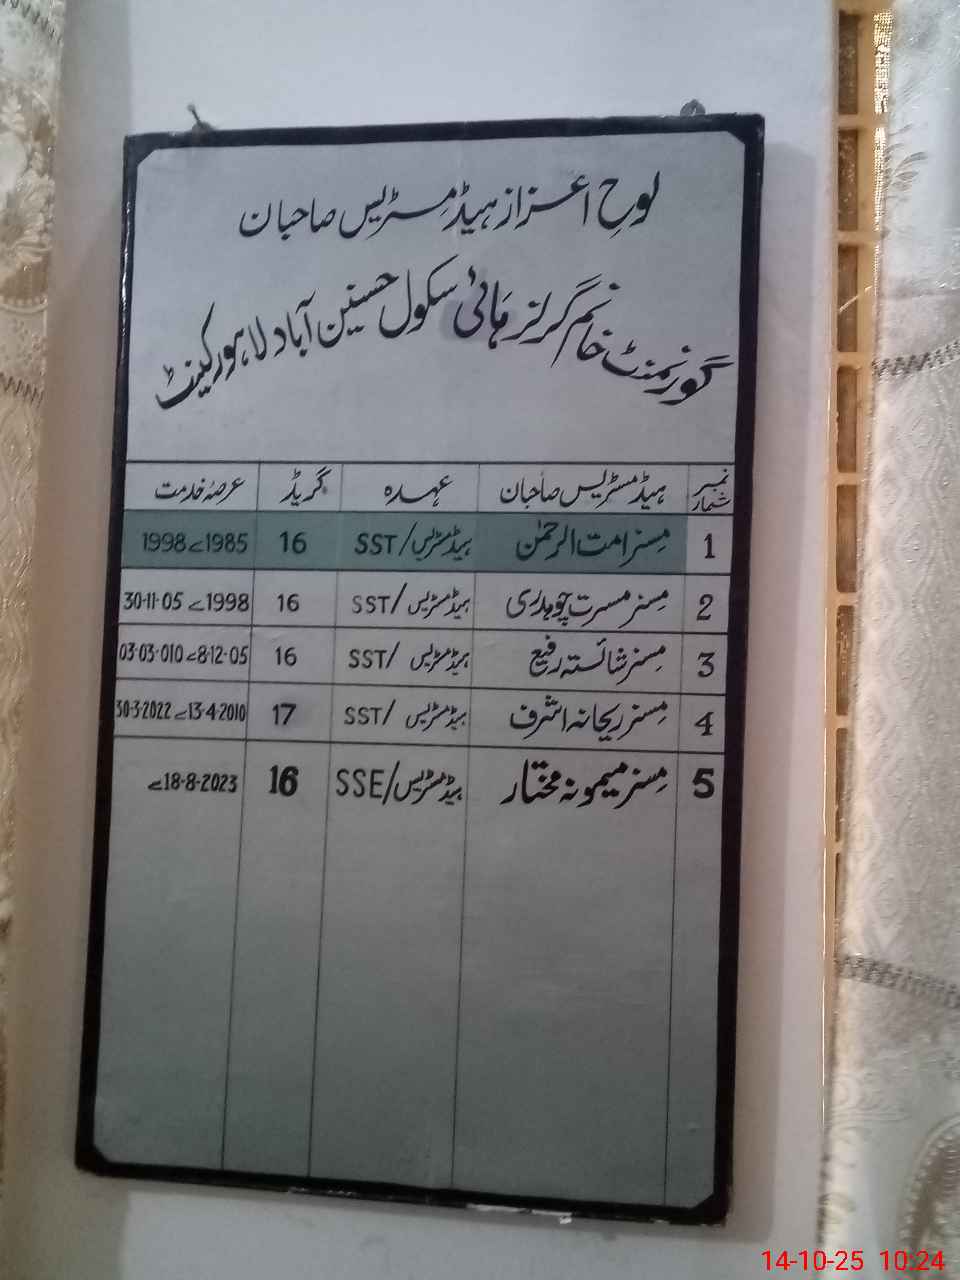 لوحِ اعزاز ہیڈمسٹریس صاحبان
گورنمنٹ خانم گرلز ہائی سکول حسنین آباد لاہور کینٹ
نمبر شمار ہیڈمسٹریس صاحبان عہدہ گریڈ عرصہ خدمت
1 مسز امت الرحمٰن ہیڈمسٹریس/SST 16 1985 سے 1998
2 مسز مسرت چوہدری ہیڈمسٹریس/SST 16 1998 سے 30-11-05
3 مسز شائستہ رفیع ہیڈمسٹریس/SST 16 8-12-05 سے 03-03-010
4 مسز ریحانہ اشرف ہیڈمسٹریس/SST 17 13-4-2010 سے 30-3-2022
5 مسز میمونہ مختار ہیڈمسٹریس/SSE 16 18-8-2023 سے
14-10-25 10:24